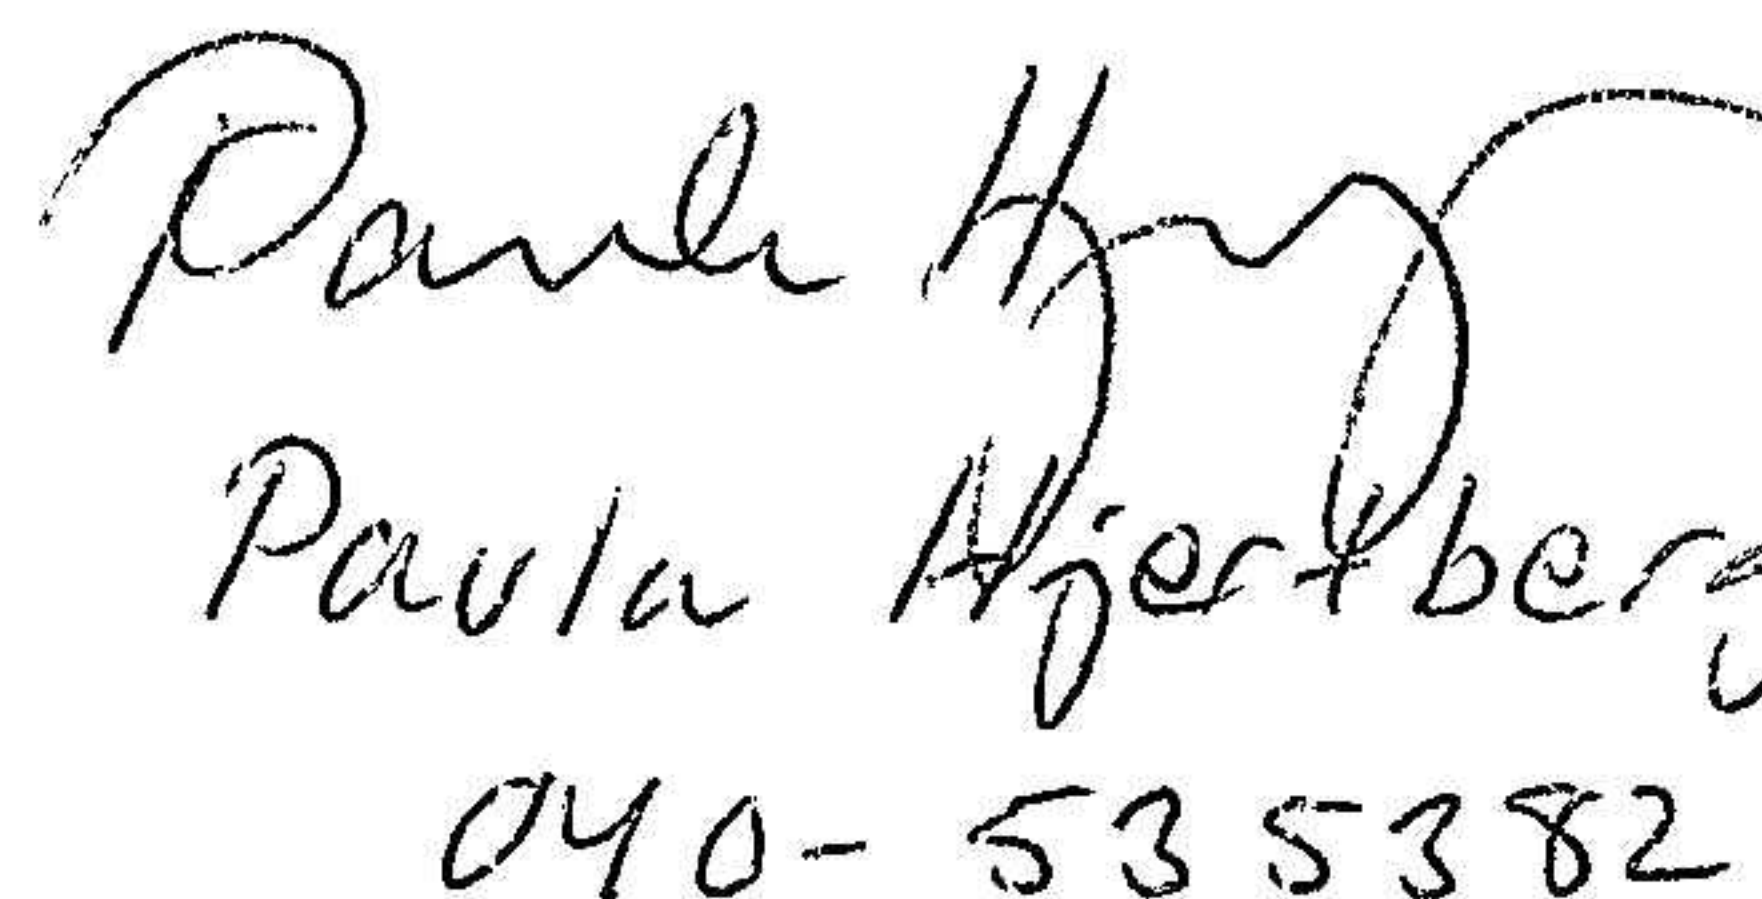 Paula
Paula Hjertberg
040-535382